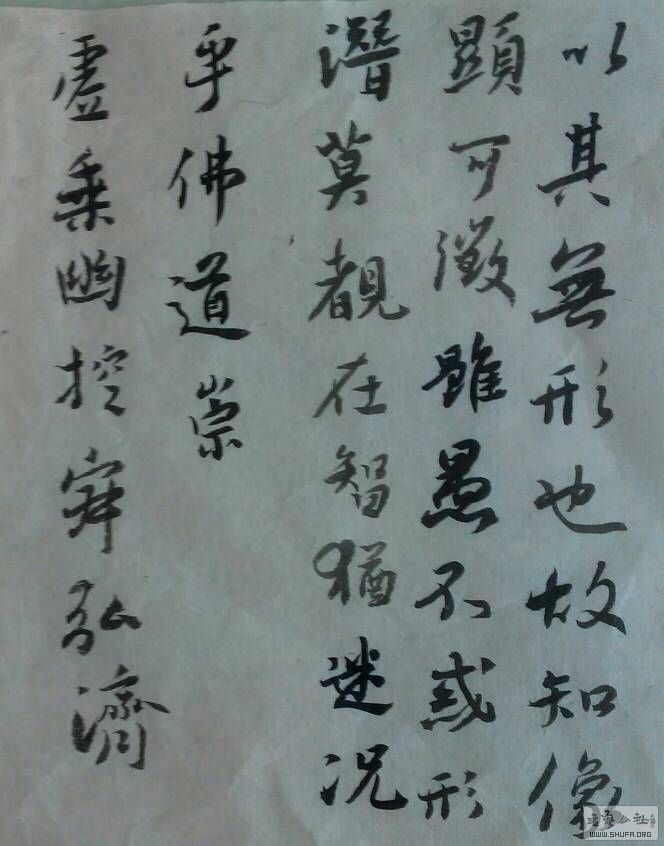 以其無形也故知像
顯可徵雖愚不惑形
潛莫覩在智猶迷况
乎佛道崇
虛乗幽控寂弘濟
WWW.SHUFA.ORG